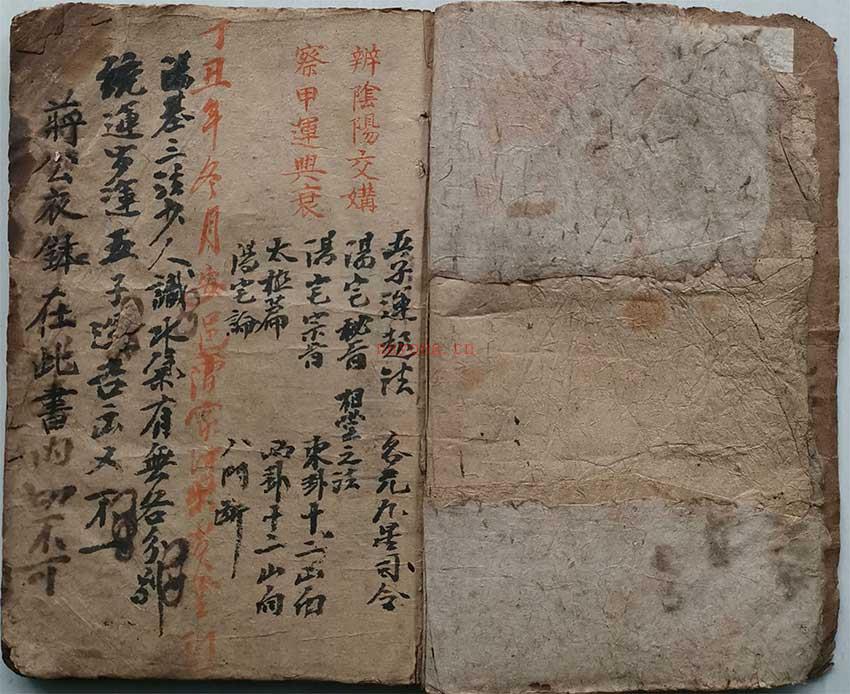 辨陰陽交媾
察甲運興衰
五子運起法
各元九星司令
陽宅秘旨
相塋之法
陽宅宗旨
東卦十二山向
太極篇
西卦十二山向
陽宅論
八門斷
丁丑年冬月
陽基二法少人識水氣有無各分
統運步運五子運吉凶又不一
蔣公衣鉢在此書內切不可